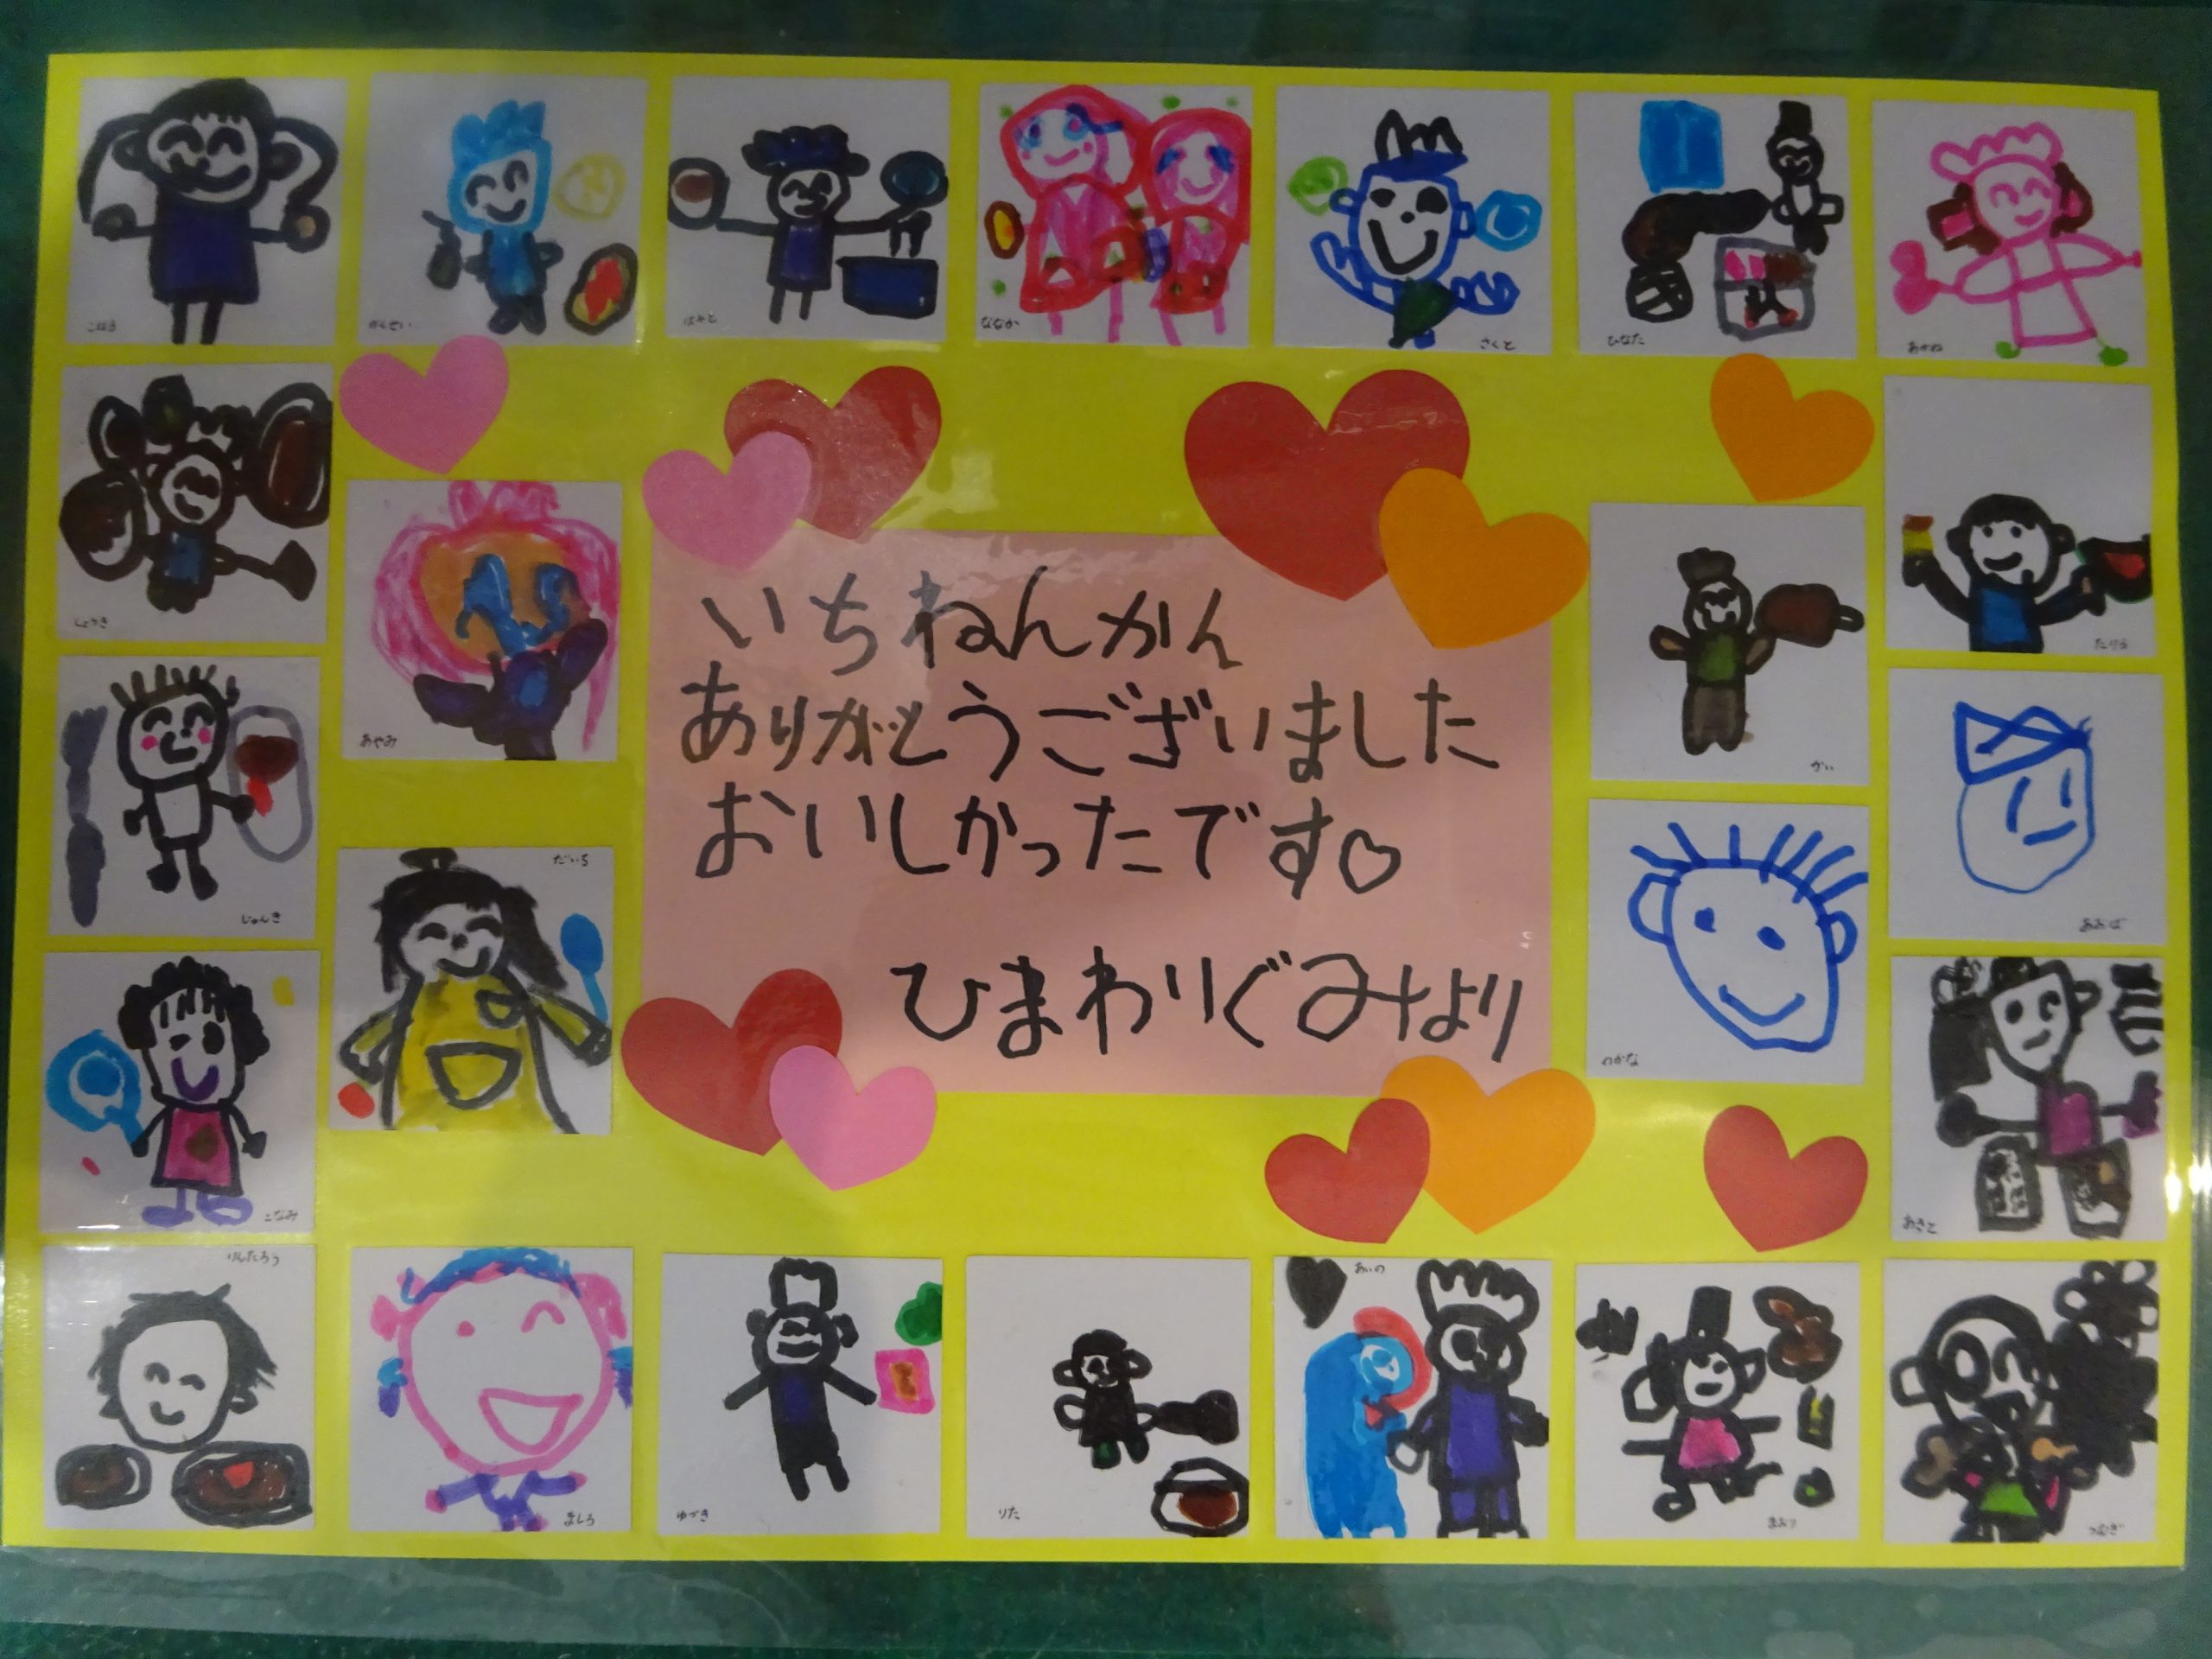 こはる
かんせい
はやと
ななか
さくと
ひなた
あかね
しょうき
あやみ
じゅんき
だいち
こなみ
りんたろう
いちねんかん
ありがとうございました
おいしかったです♡
ひまわりぐみより
かい
わかな
たろう
あおば
あきと
ましろ
ゆづき
りた
あいの
まお
つむぎ